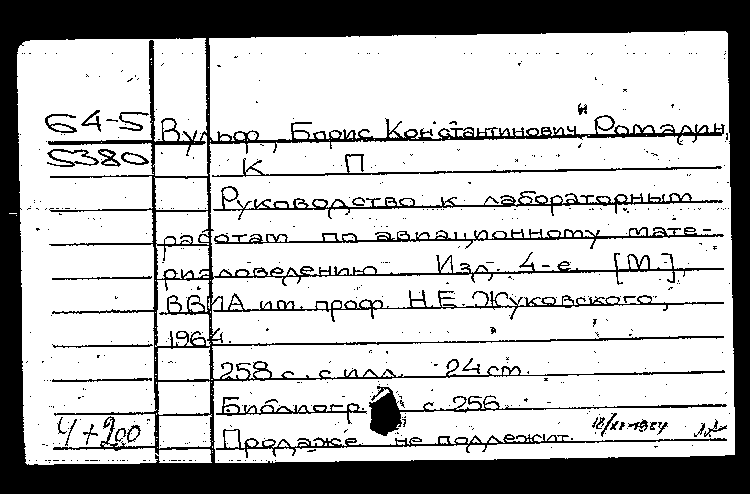 64-5 Вульф, Борис Константинович, Ромадин,
5380 К П
Руководство к лабораторным
работам по авиационному мате-
риаловедению. Изд. 4-е. [М.],
ВВИА им. проф. Н.Е. Жуковского,
1964.
258 с. с илл. 24 см.
Библиогр. с. 256.
4+200 Продаже не подлежит.